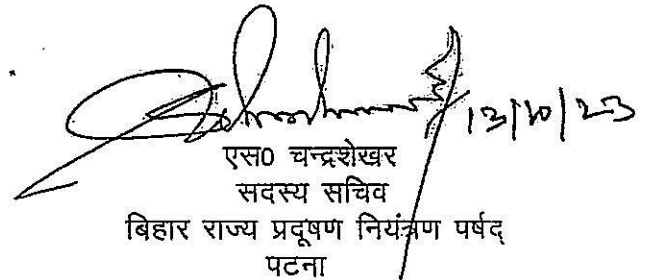 13/10/23
एस0 चन्द्रशेखर
सदस्य सचिव
बिहार राज्य प्रदूषण नियंत्रण पर्षद्
पटना